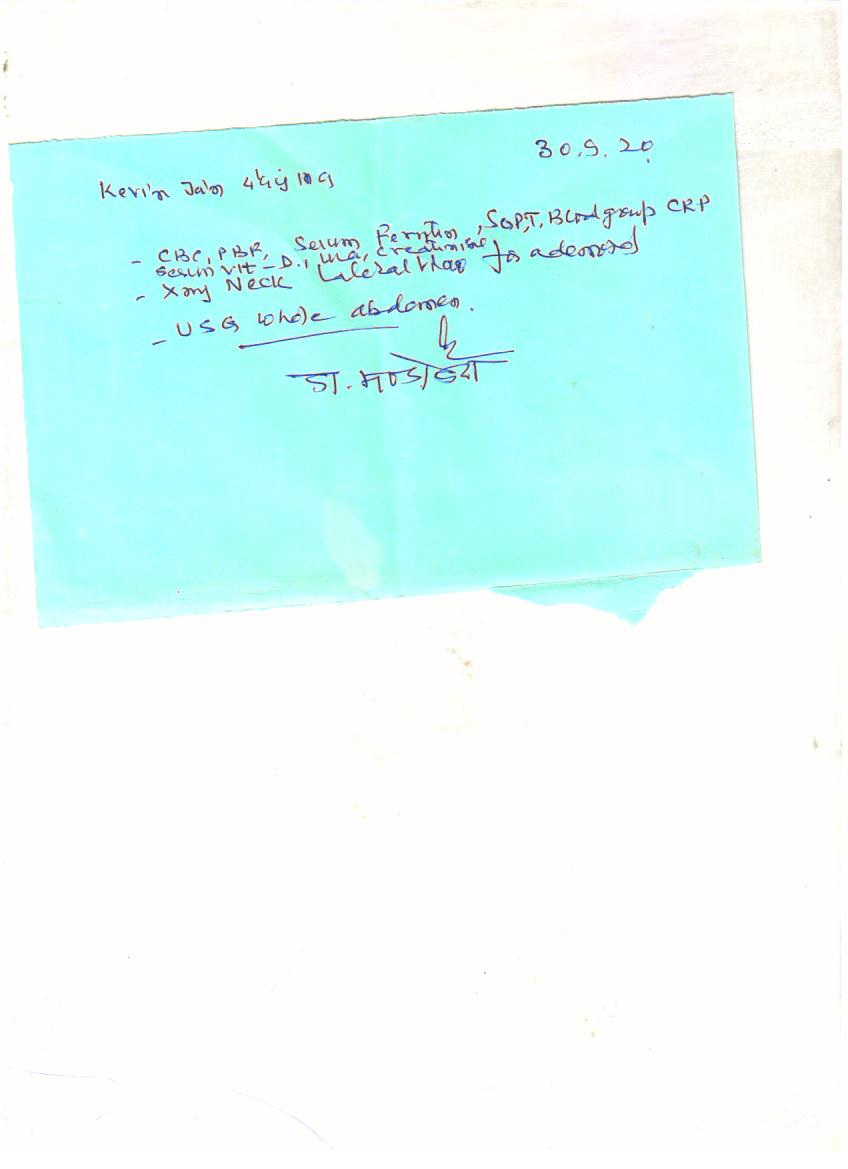 30.9.20
Kevin Jain
- CBC, PBF, Serum Ferritin, SGPT, Blood group CRP
Serum vit-D, creatinine
- Xray Neck Lateral view for adenoid
- USG whole abdomen.
डा.